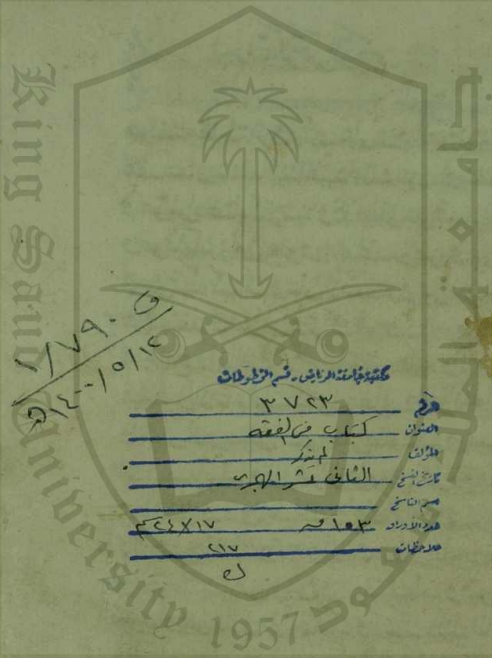 King Saud University
جامعة الملك سعود
1957
ف ١/٧٩٠
١٤٠٠/٥/١٢ هـ
مكتبة جامعة الرياض - قسم المخطوطات
الرقم ٣٧٢٣
العنوان كتاب في الفقه
المؤلف لم يذكر
تاريخ النسخ الثاني عشر الهجري
اسم الناسخ
عدد الأوراق ١٥٣ ٢٤x١٧ سم
ملاحظات ٢١٧
ك